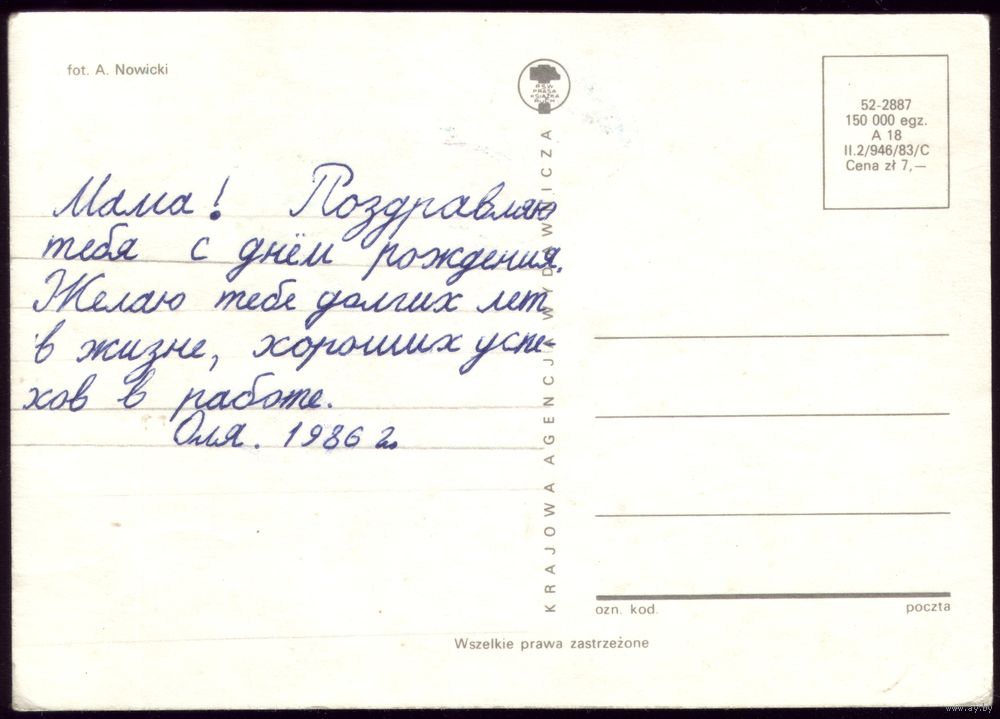 fot. A. Nowicki
RSW
PRASA
KSIĄŻKA
RUCH
52-2887
150 000 egz.
A 18
II.2/946/83/C
Cena zł 7,—
Мама! Поздравляю
тебя с днём рождения.
Желаю тебе долгих лет
в жизне, хороших успе-
хов в работе.
Оля. 1986 г.
KRAJOWA AGENCJA WYDAWNICZA
ozn. kod.
poczta
Wszelkie prawa zastrzeżone
www.ay.by